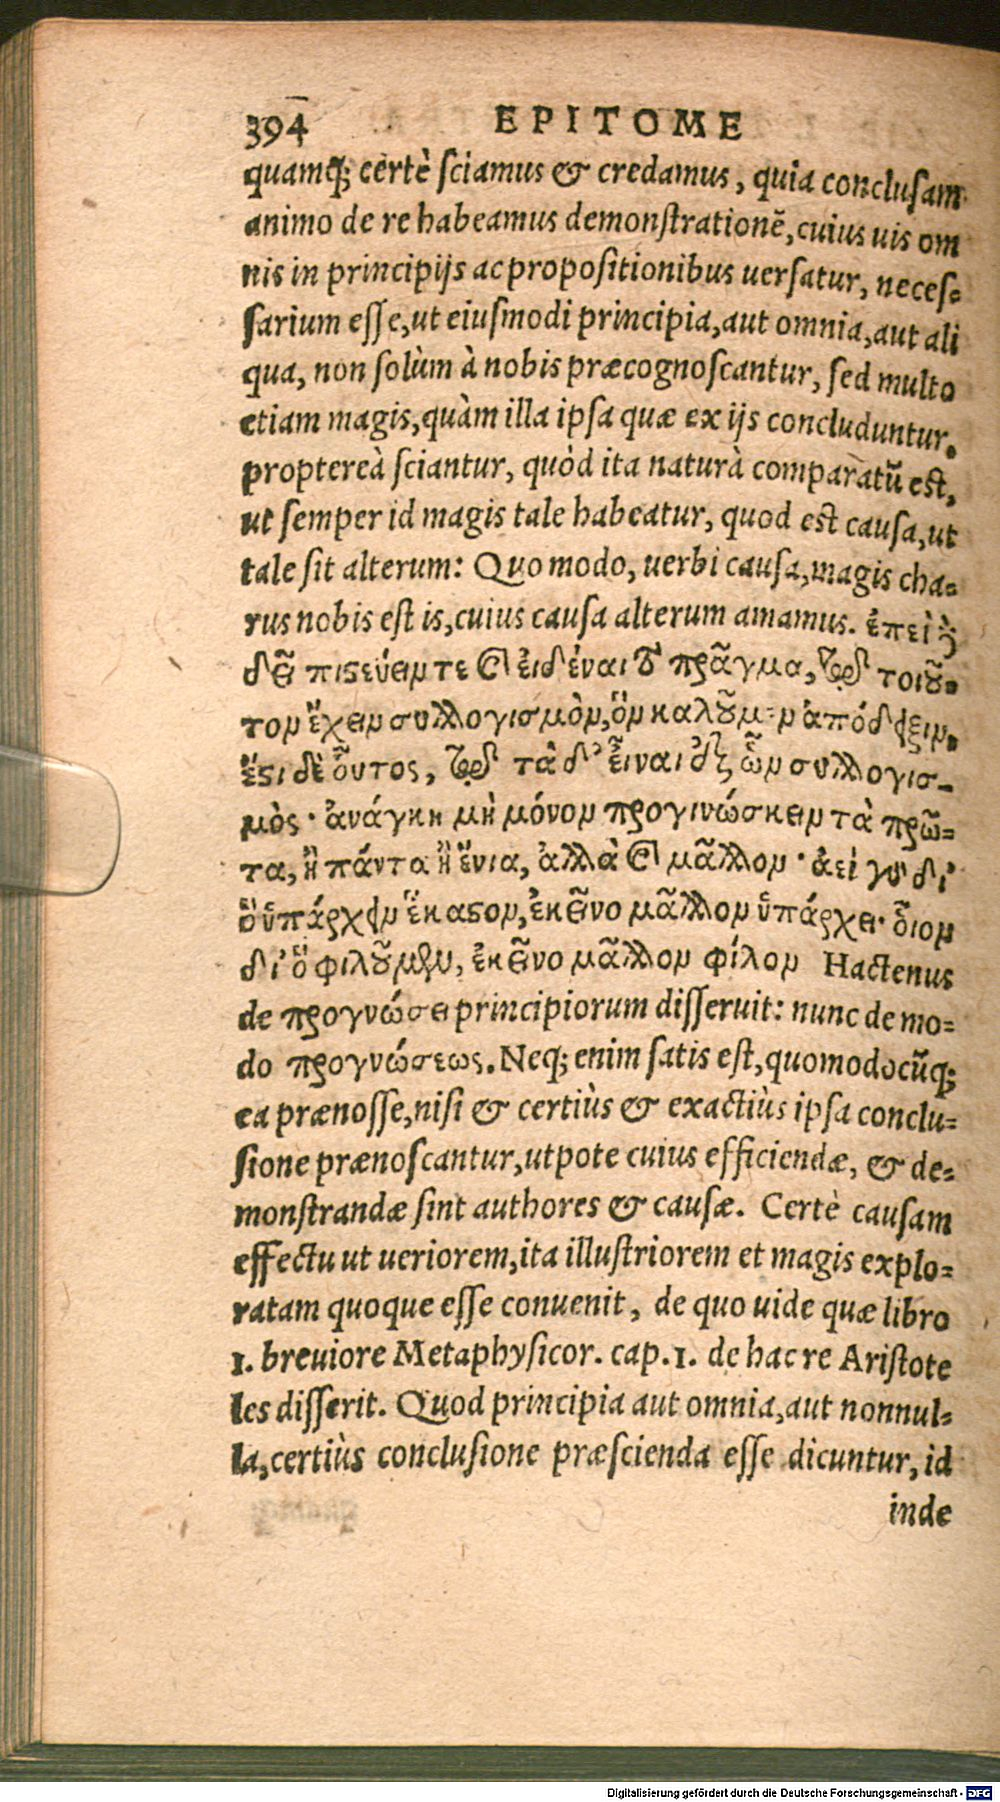 394 EPITOME
quamq; certè ſciamus & credamus, quia concluſam
animo de re habeamus demonſtrationẽ, cuius uis om
nis in principijs ac propoſitionibus uerſatur, neceſ-
ſarium eſſe, ut eiuſmodi principia, aut omnia, aut ali
qua, non ſolùm à nobis præcognoſcantur, ſed multo
etiam magis, quàm illa ipſa quæ ex ijs concluduntur.
propterea̍ ſciantur, quòd ita naturà comparatũ eſt,
ut ſemper id magis tale habeatur, quod eſt cauſa, ut
tale ſit alterum: Quo modo, uerbi cauſa, magis cha-
rus nobis eſt is, cuius cauſa alterum amamus. ἐπεὶ ϳ
δεῖ πιϛεύειν τε καὶ εἰδέναι τὸ πρᾶγμα, τῷ τοιοῦ-
τον ἔχειν συλλογισμὸν, ὃν καλοῦμεν ἀπόδειξιν.
ἔϛι δὲ οὗτος, τῷ τὰ δ' εἶναι ἐξ ὧν συλλογισ-
μὸς· ἀνάγκη μὴ μόνον προγινώσκειν τὰ πρῶ-
τα, ἢ πάντα ἢ ἔνια, ἀλλὰ καὶ μᾶλλον· ἀεὶ γὸ δι'
ὃ ὑπάρχειν ἕκαϛον, ἐκεῖνο μᾶλλον ὑπάρχει· οἷον
δι' ὃ φιλοῦμεν, ἐκεῖνο μᾶλλον φίλον Hactenus
de προγνώσει principiorum diſſeruit: nunc de mo-
do προγνώσεως. Neq; enim ſatis eſt, quomodocũq;
ea prænoſſe, niſi & certiùs & exactiùs ipſa conclu-
ſione prænoſcantur, utpote cuius efficiendæ, & de-
monſtrandæ ſint authores & cauſæ. Certè cauſam
effectu ut ueriorem, ita illuſtriorem et magis explo-
ratam quoque eſſe conuenit, de quo uide quæ libro
1. breuiore Metaphyſicor. cap. 1. de hac re Ariſtote
les diſſerit. Quod principia aut omnia, aut nonnul-
la, certiùs concluſione præſcienda eſſe dicuntur, id
inde
Digitalisierung gefördert durch die Deutsche Forschungsgemeinschaft - DFG